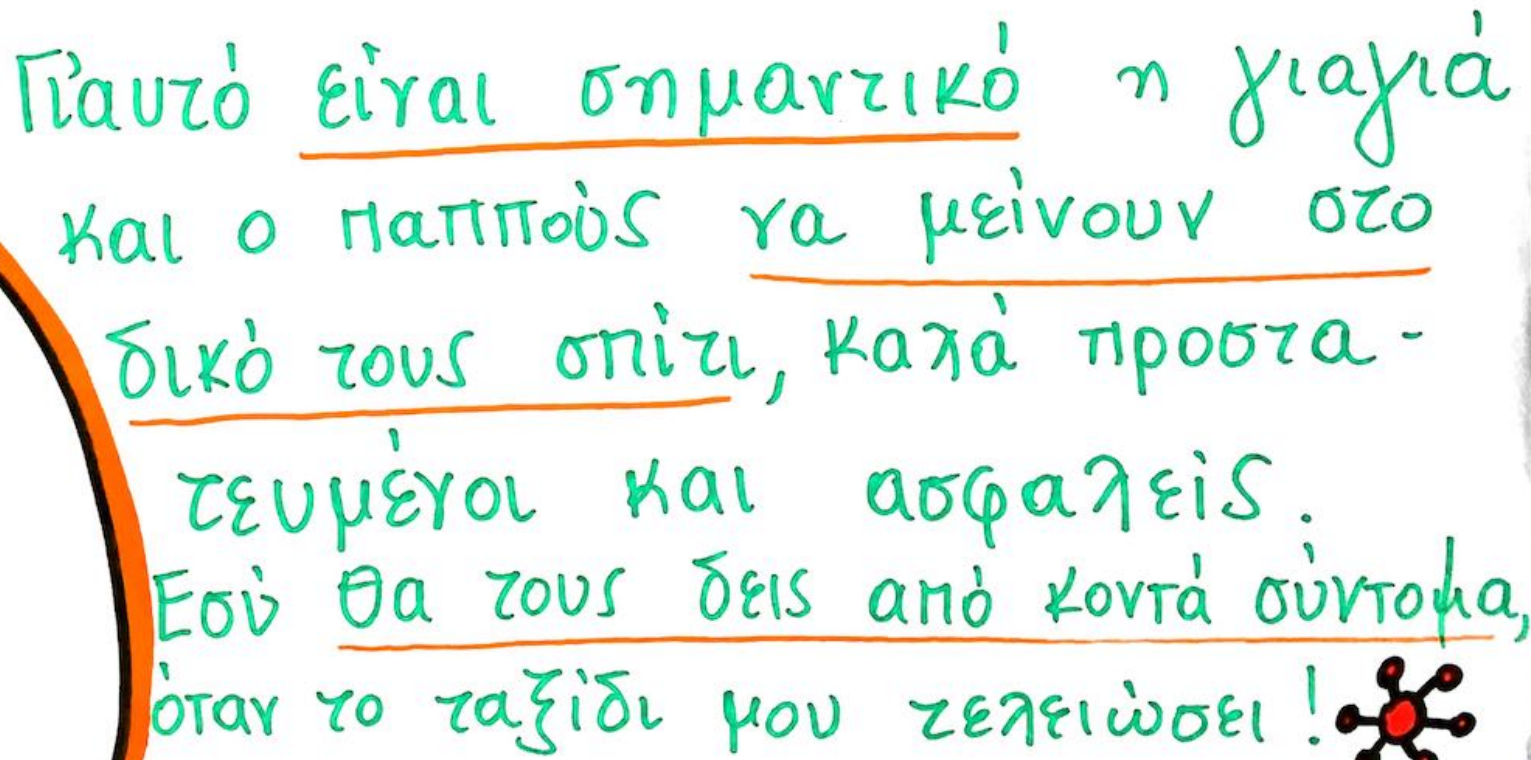 Γι'αυτό είναι σημαντικό η γιαγιά
και ο παππούς να μείνουν στο
δικό τους σπίτι, καλά προστα-
τευμένοι και ασφαλείς.
Εσύ θα τους δεις από κοντά σύντομα,
όταν το ταξίδι μου τελειώσει!